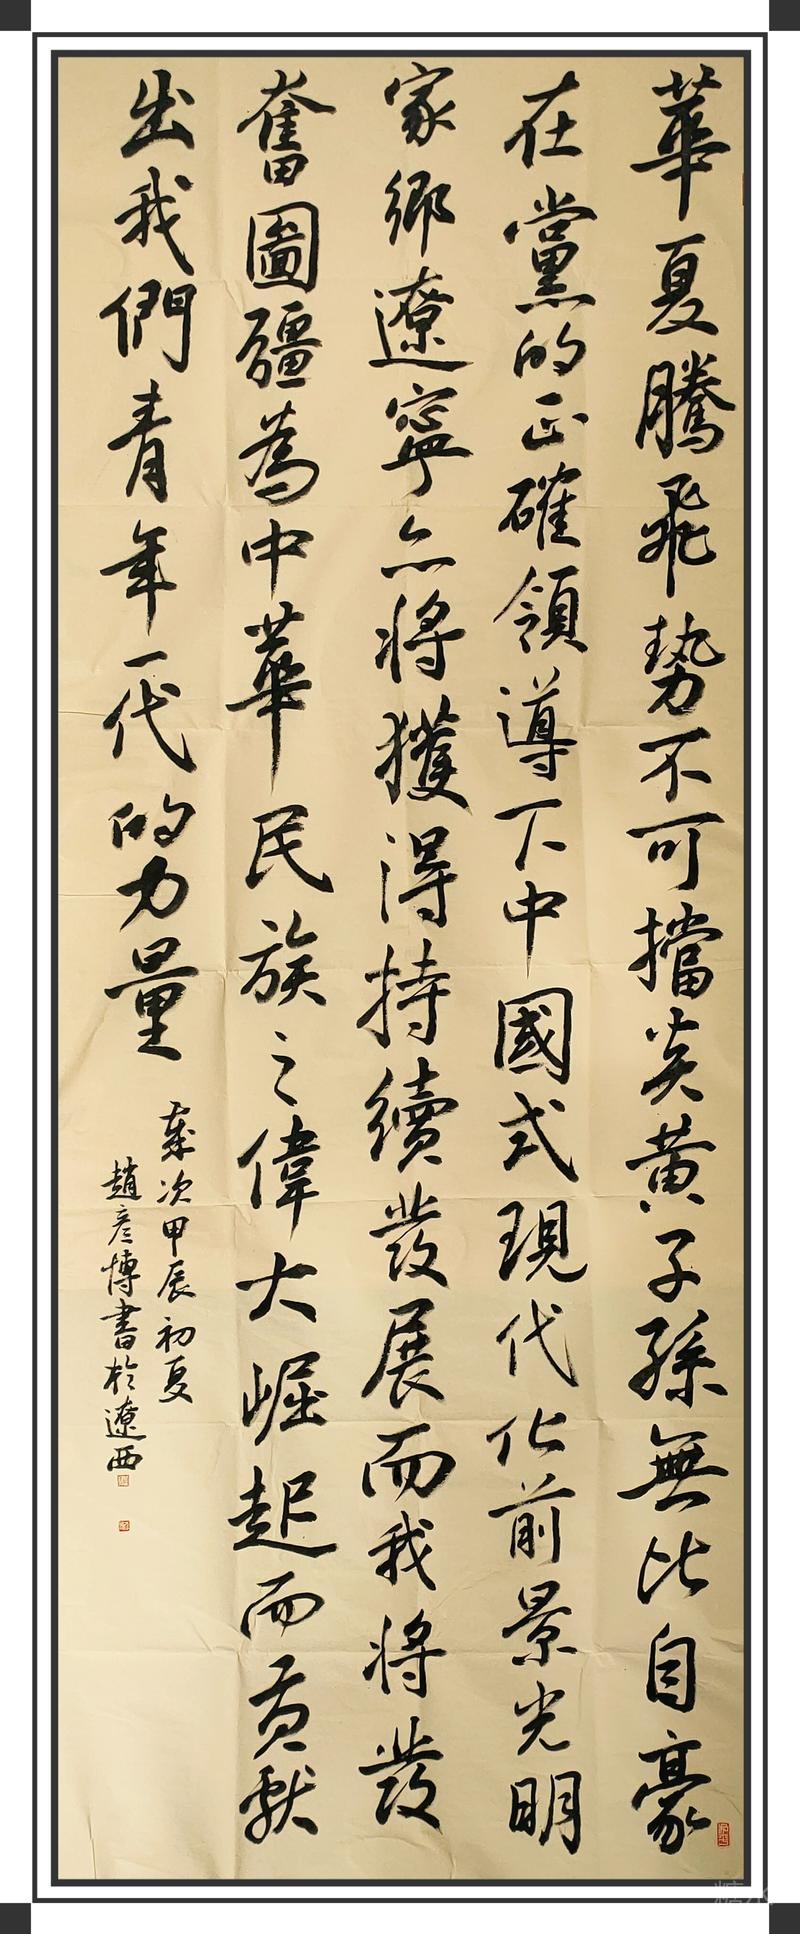 華夏騰飛勢不可擋炎黃子孫無比自豪
在黨的正確領導下中國式現代化前景光明
家鄉遼寧亦將獲得持續發展而我將發
奮圖疆為中華民族之偉大崛起而貢獻
出我們青年一代的力量
歲次甲辰初夏
趙彥博書於遼西